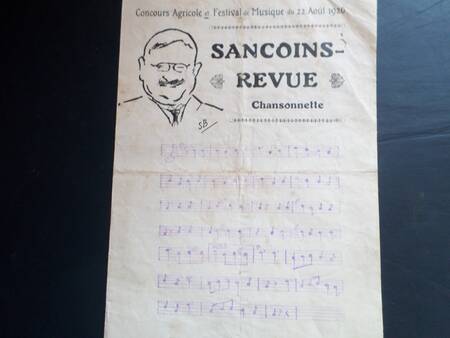 Concours Agricole et Festival de Musique du 22 Août 1926
SANCOINS-
REVUE
Chansonnette
SB